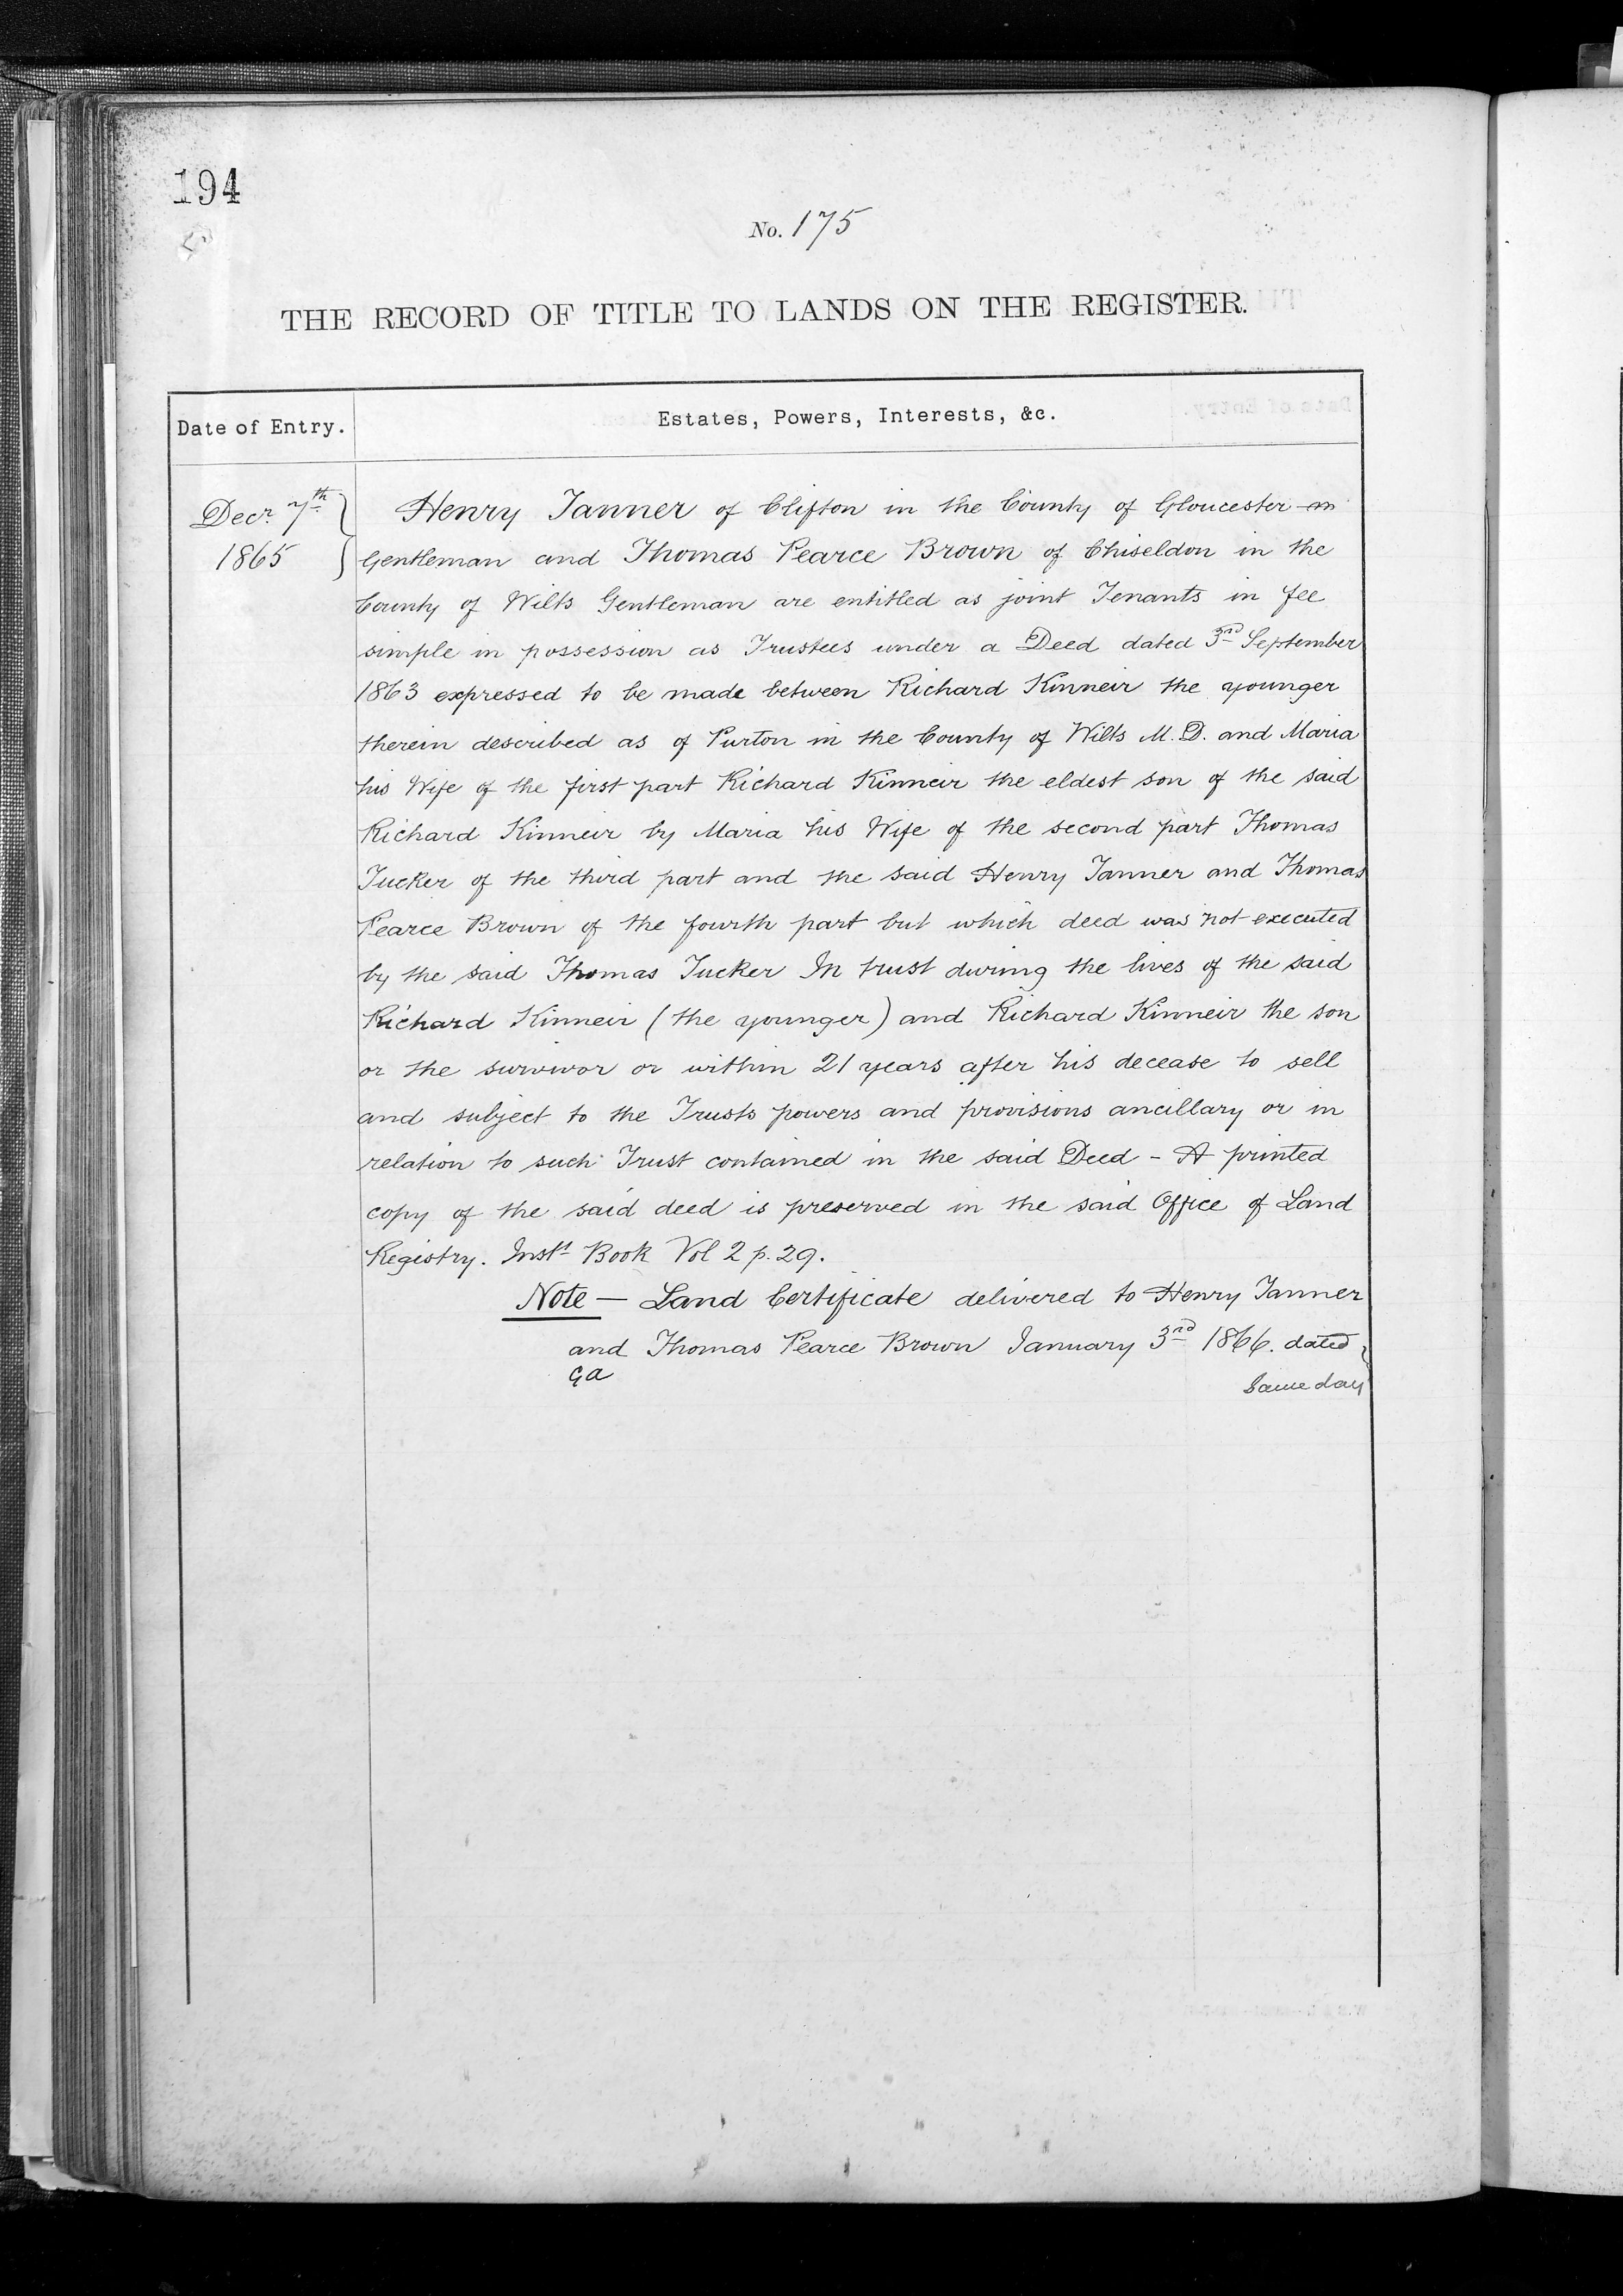 194
No. 175
THE RECORD OF TITLE TO LANDS ON THE REGISTER.
Date of Entry.
Estates, Powers, Interests, &c.
Decr. 7th
1865
Henry Tanner of Clifton in the County of Gloucester
Gentleman and Thomas Pearce Brown of Chiseldon in the
County of Wilts Gentleman are entitled as joint Tenants in fee
simple in possession as Trustees under a Deed dated 3rd September
1863 expressed to be made between Richard Kinneir the younger
therein described as of Purton in the County of Wilts M.D. and Maria
his Wife of the first part Richard Kinneir the eldest son of the said
Richard Kinneir by Maria his Wife of the second part Thomas
Tucker of the third part and the said Henry Tanner and Thomas
Pearce Brown of the fourth part but which deed was not executed
by the said Thomas Tucker In trust during the lives of the said
Richard Kinneir (the younger) and Richard Kinneir the son
or the survivor or within 21 years after his decease to sell
and subject to the Trusts powers and provisions ancillary or in
relation to such Trust contained in the said Deed - A printed
copy of the said deed is preserved in the said Office of Land
Registry. Instt Book Vol 2 p. 29.
Note — Land Certificate delivered to Henry Tanner
and Thomas Pearce Brown January 3rd 1866. dated
same day